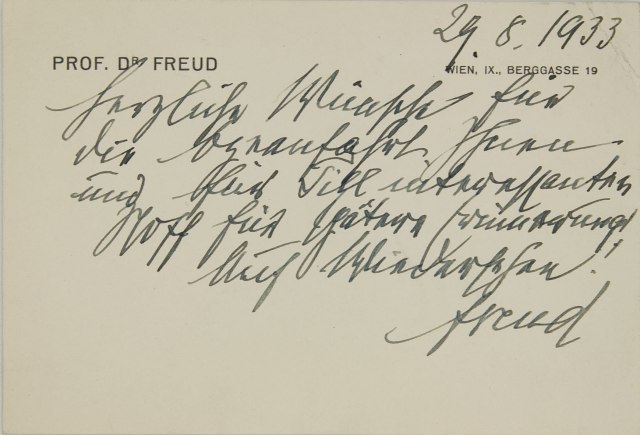 29.8.1933
PROF. DR FREUD
WIEN, IX., BERGGASSE 19
Herzliche Wünsche für
die Ozeanfahrt Ihnen
und für Till interessanten
Stoff für spätere Erinnerung!
Auf Wiedersehen!
Freud